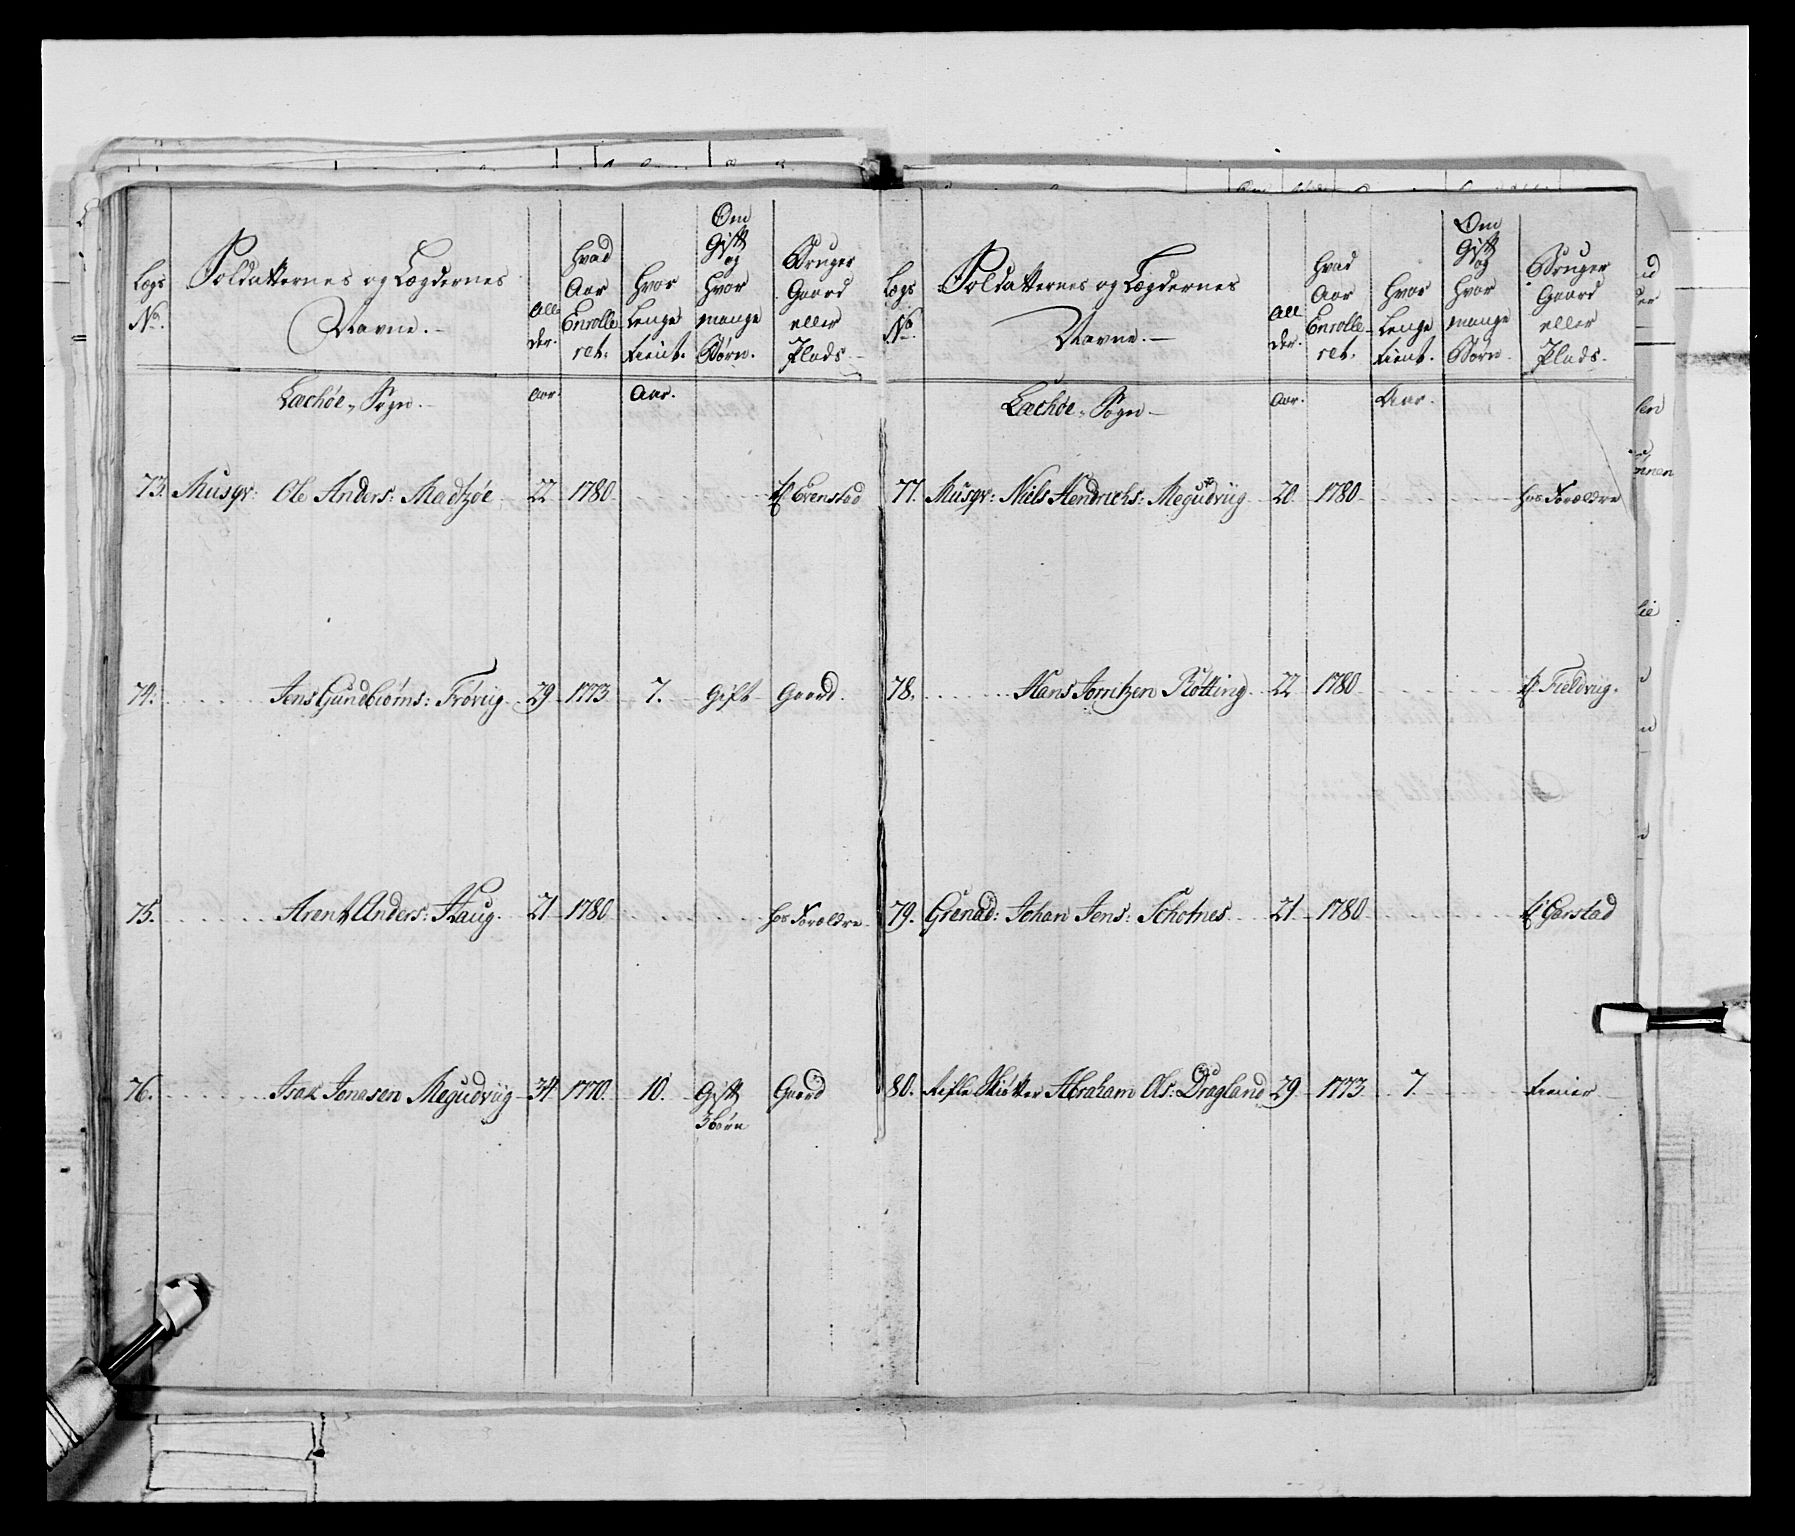 Lægs No. Soldatternes og Lægdernes Navne. Allder. Hvad Aar Enrolleret. Hvor Lenge tient. Om Gift og Hvor mange Børn. Bruger Gaard eller Plads.
Lechøe Sogn. Aar. Aar.
73. Musqr: Ole Anders: Madtzøe 22 1780 Evenstad
74. Jens Gundbiørns: Frøvig 29 1773 7. Gift Gaard.
75. Arent Anders: Haug. 21 1780 hos Forældre
76. Isak Jonasen Megudviig 34 1770 10. Gift Gaard
3 børn
Lægs No. Soldatternes og Lægdernes Navne. Allder. Hvad Aar Enrolleret. Hvor Lenge tient. Om Gift og Hvor mange Børn. Bruger Gaard eller Plads.
Lechøe Sogn Aar. Aar.
77. Musqr: Niels Hendrichs: Megudviig 20 1780 hos Forældre
78. Hans Jorntzen Røtting 22 1780 Fieldvig.
79. Grenad: Johan Jens: Schotnes 21 1780 Garstad
80. Rifle Skiøtter Abraham Ols: Dragland 29 1773 7. tiener